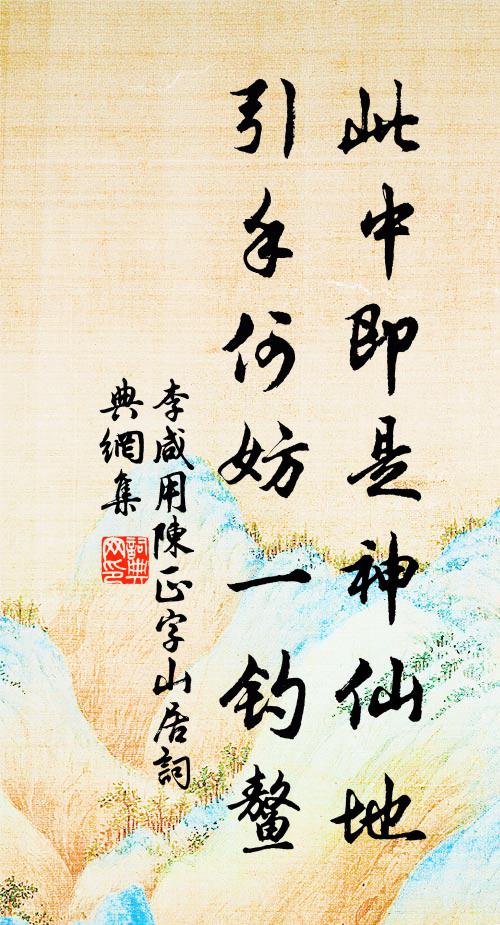 此中即是神仙地
引手何妨一钓鳌
李咸用陳正字山居詞
典網集
詞典
网印